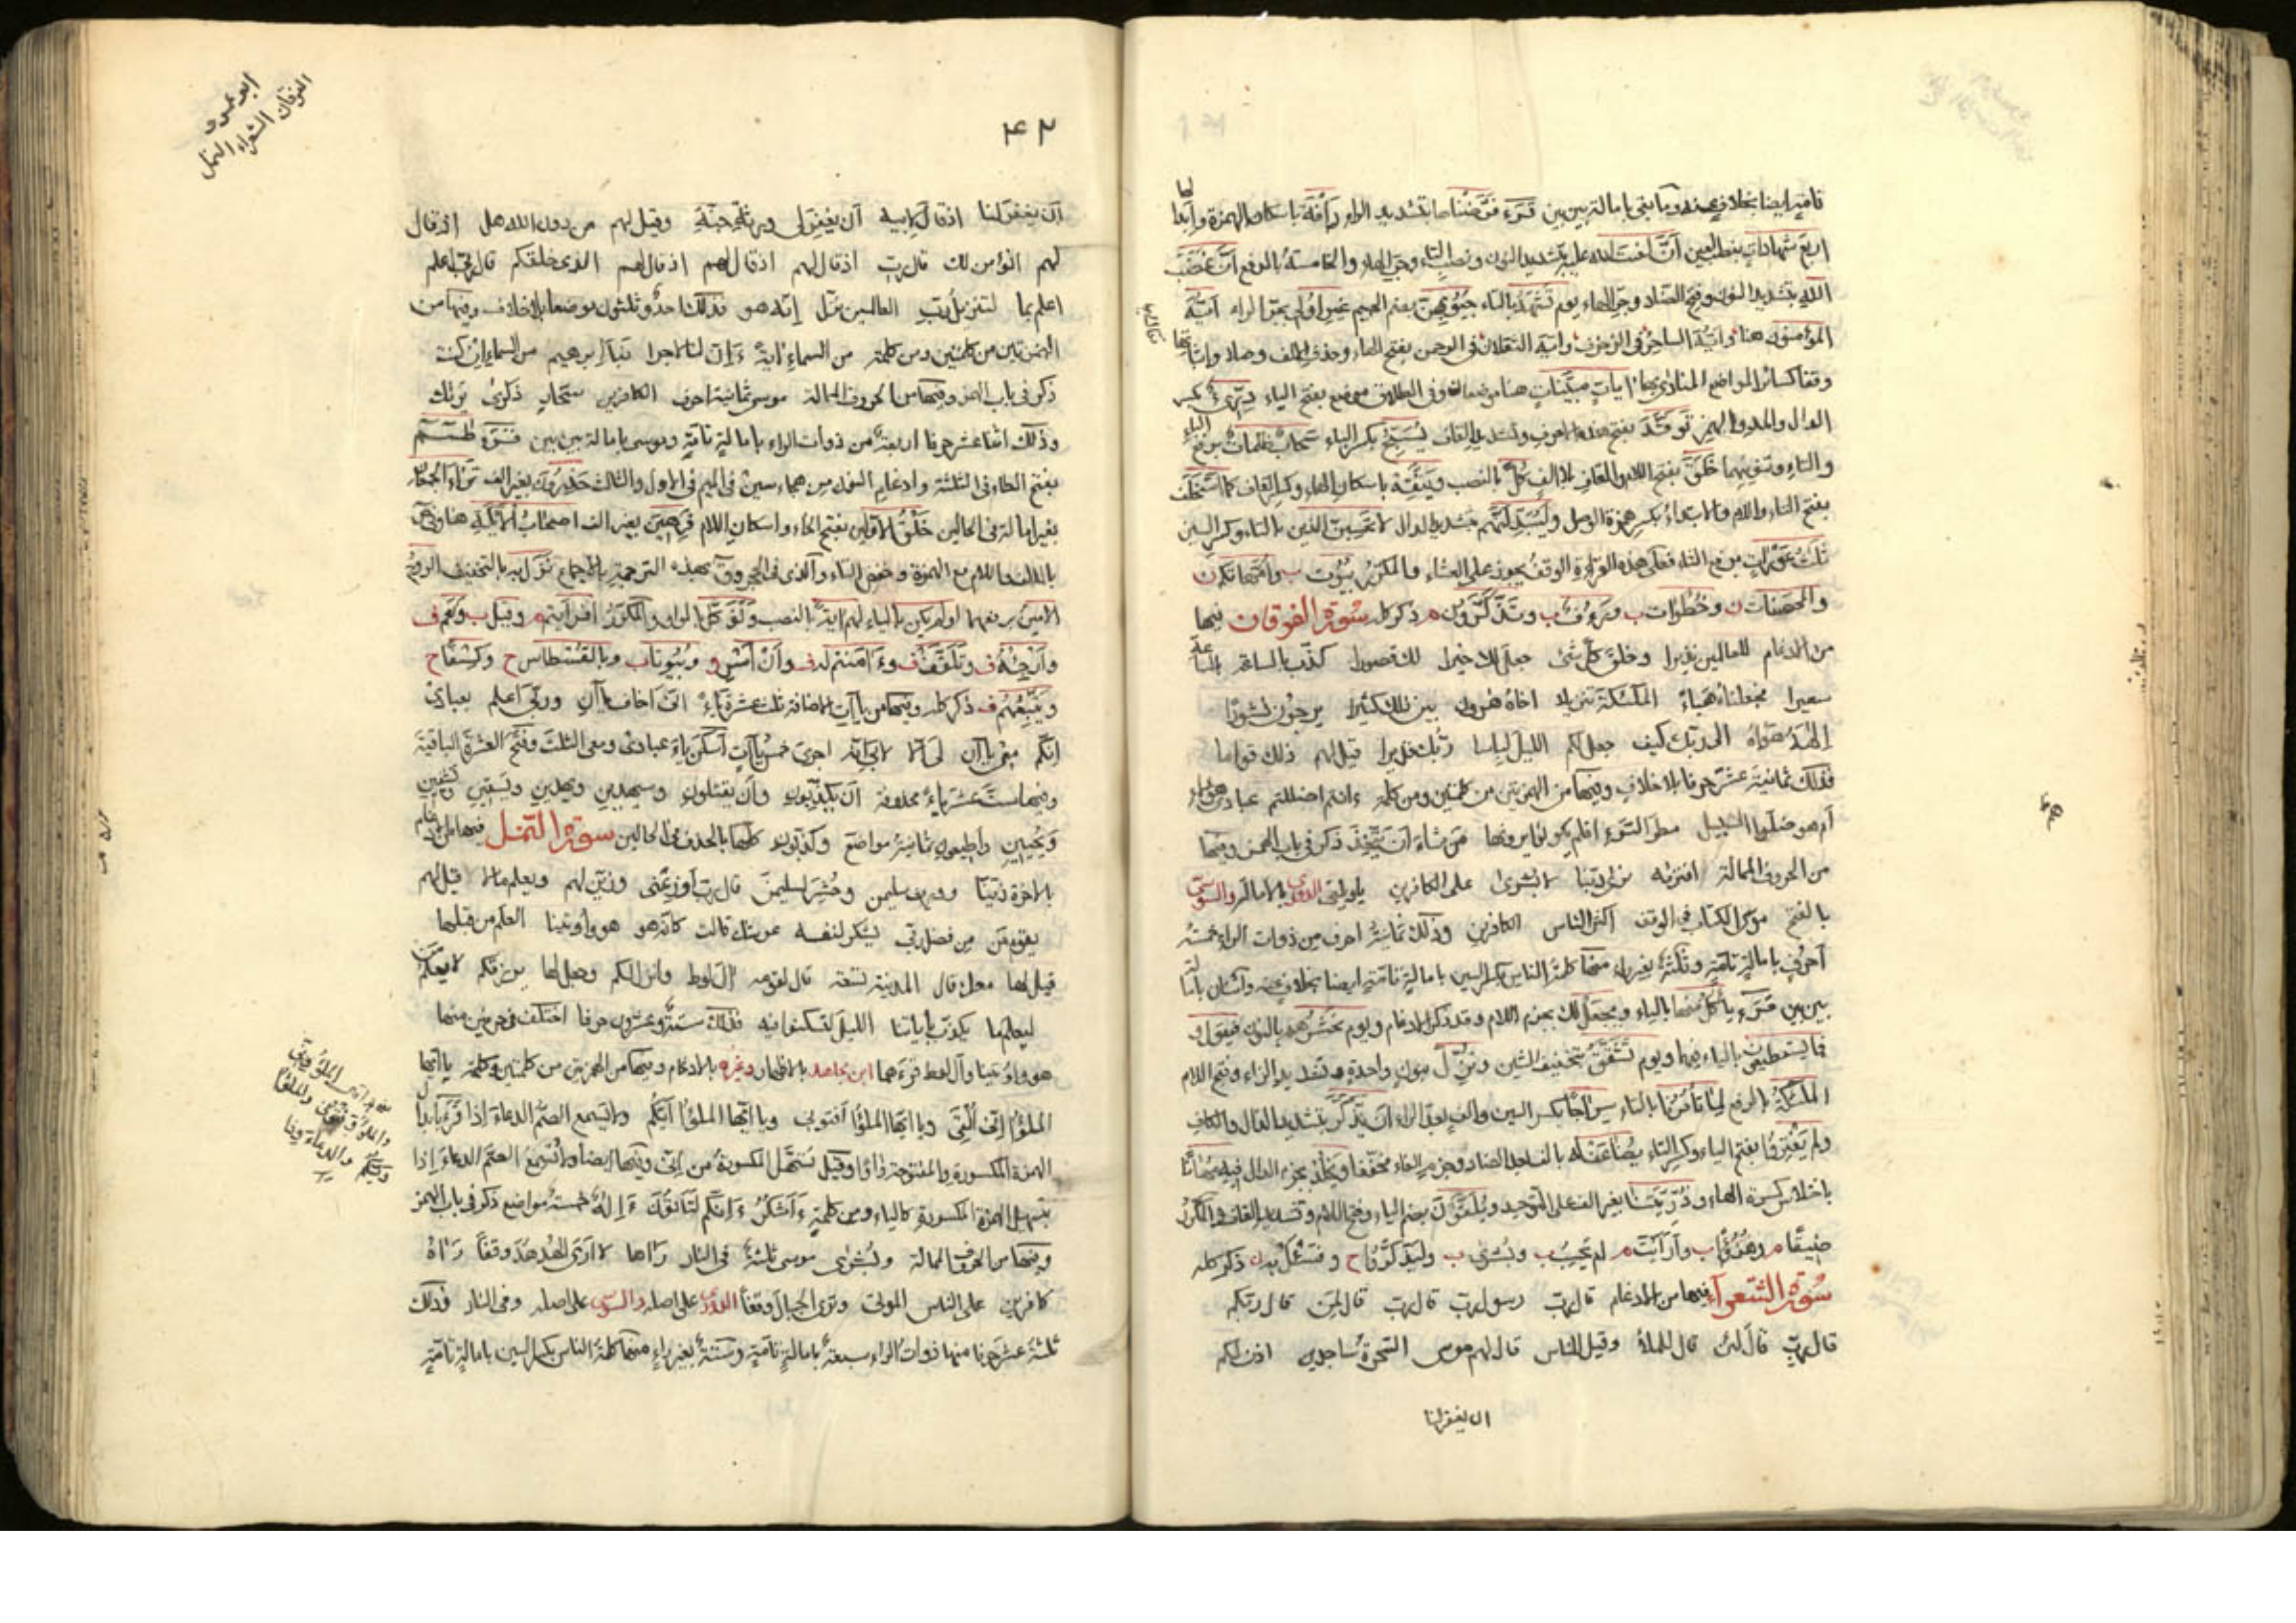 قرء فرضناها بتشديد الراء رأفة باسكان الهمزة
اربع شهادات بنصب العين أنّ لعنت الله عليه بتشديد النون ونصب التاء وجر الهاء والخامسة بالرفع أنّ غضب
الله بتشديد النون وفتح الضاد وجر الهاء يوم تشهد بالتاء جيوبهن بضم الجيم غير اولى بجر الراء ايّه
المؤمنون هنا وايّه الساحر فى الزخرف وايّه الثقلان فى الرحمن بفتح الهاء وحذف الالف وصلا واثباتها
وقفا كسائر المواضع ايات مبيّنات هنا موضعان وفى الطلاق موضع بفتح الياء درّىء بكسر
الدال والمد والهمز توقّد بفتح وتشديد القاف يسبّح بكسر الباء سحاب ظلمات برفع الباء
والتاء وتنوينهما خلق بفتح اللام والقاف بلا الف كلّ بالنصب ويتّقه باسكان الهاء وكسر القاف كما استخلف
بفتح التاء واللام والابتداء بكسر همزة الوصل وليبدّلنّهم بتشديد الدال لا تحسبنّ الذين بالتاء وكسر السين
ثلث عورات برفع الثاء فعلى هذه القراءة الوقف يجوز على العشاء والمكرّر بيوت ب وامّهاتكم ن
والمحصنات ن وخطوات ب ورءوف ب وتذكّرون م ذكر كله سورة الفرقان فيها
من الادغام للعالمين نذيرا وخلق كل شئ جعل لك خيرا لك قصورا كذّب بالساعة بالساعة
سعيرا فجعلناه هباء الملئكة تنزيلا اخاه هرون بين ذلك كثيرا يرجون نشورا
إلهه هواه الى ربّك كيف جعل لكم الليل لباسا ربّك قديرا قيل لهم ذلك قواما
فذلك ثمانية عشر حرفا بلا خلاف وفيها من الهمزتين من كلمتين ومن كلمة ءانتم اضللتم عبادى هؤلاء
أم هم ضلّوا السبيل مطر السّوء افلم يكونوا يرونها من شاء أن يتّخذ ذكر فى باب الهمز وفيها
من الحروف الممالة افتريه لا بشرى على الكافرين يا ويلتى الدورى بالامالة والسوسى
بالفتح موسى الكتاب فى الوقف اكثر الناس الكافرين وذلك ثمانية احرف من ذوات الراء خمسة
أحرف بامالة تامّة وثلثة بغير راء منها كلمة الناس بكسر السين بامالة تامّة ايضا بخلاف عنه واثنان بامالة
بين بين قرء يأكل منها بالياء ويجعل لك بجزم اللام وقد ذكر فى الادغام ويوم نحشرهم بالنون فيقول
فما يستطيعون بالياء فيها ويوم تشقّق بتخفيف الشين ونزّل بنون واحدة وتشديد الزاء وفتح اللام
الملئكة بالرفع لما تأمرنا بالتاء سراجا بكسر السين والف بعد الراء أن يذّكّر بتشديد الذال والكاف
ولم يقتروا بفتح الياء وكسر التاء يضاعف له بالف بعد الضاد وجزم الفاء مخفّفا ويخلد بجزم الدال فيه مهانا
باختلاس كسرة الهاء وذرّيتنا بغير الف على التوحيد ويلقّون بضم الياء وفتح اللام وتشديد القاف والمكرّر
ضيّقا م وهزؤا ب وأرأيت م لم تحسب ب وبشرى ب وليذّكّروا ح وفسئل به ن ذكر كله
سورة الشعرآء فيها من الادغام قال رب رسول رب قال رب قال لمن قال ربّكم
قال رب قال لئن قال للملأ وقيل للناس قال لهم موسى السّحرة ساجدين اذن لكم
ان يغفر لنا
ابو عمرو
الفرقان الشعراء النمل
٤٢
أن يغفر لنا اذ قال لابيه أن يغفر لى ورثة جنّة وقيل لهم من دون الله هل اذ قال
لهم انؤمن لك قال رب اذ قال لهم اذ قال لهم اذ قال لهم الذى خلقكم قال ربّى اعلم
اعلم بما لتنزيل رب العالمين نزل إنّه هو فذلك احد وثلثون موضعا بلا خلاف وفيها من
الهمزتين من كلمتين ومن كلمة من السماء اية ءإنّ لنا لاجرا نبأ ابرهيم من السماء إن كنت
ذكر فى باب الهمز وفيها من الحروف الممالة موسى ثمانية احرف الكافرين سحّار ذكرى يريك
وذلك اثنا عشر حرفا اربعة من ذوات الراء بامالة تامّة وموسى بامالة بين بين قرء طسم
بفتح الطاء فى الثلثة وادغام النون من هجاء سين فى الميم فى الاول والثالث حذرون بغير الف ترآء الجمعان
بغير امالة فى الحالين خلق الاوّلين بفتح الخاء واسكان اللام فرهين بغير الف اصحاب الايكة هنا وفى ص
بالالف واللام مع الهمزة وخفض التاء والذى فى الحجر وق بهذه الترجمة باجماع نزل به بالتخفيف الروح
الامين برفعهما اولم يكن بالياء لهم اية بالنصب وتوكّل بالواو والمكرّر افرأيتم م وقيل ب ونعم ف
وأرجئه ف وتلقّف ف وءامنتم له ف وأن أسر و وبيوتا ب وبالقسطاس ح وكسفا ح
ويتّبعهم ف ذكر كله وفيها من ياآت الاضافة ثلث عشرة ياء انّى اخاف ياآن وربّى اعلم بعبادى
انّكم معى ياآن لى الا لابى انّه اجرى خمس ياآت أسكن ياء عبادى ومعى الثلث وفتح العشرة الباقية
وفيها ستّ عشر ياء محذوفة أن يكذّبون وأن يقتلون وسيهدين ويهدين ويسقين ويشفين
ويحيين واطيعون ثمانية مواضع وكذّبون كلّها بالحذف فى الحالين سورة النمل فيها من الادغام
بالاخرة زيّنا وورث سليمن وحشر لسليمن قال رب أوزعنى وزيّن لهم ويعلم ما لا قيل لهم
من فضل ربى ليشكر لنفسه عرشك قالت كأنّه هو هو وأوتينا العلم من قبلها
قيل لها معك قال المدينة تسعة قال لقومه ال لوط وانزل لكم وجعل لها يرزقكم لا يعلم من
ليعلم ما يكذّب بأياتنا الليل ليسكنوا فيه فذلك ستّة وعشرون حرفا اختلف فى حرفين منها
هو وأوتينا وآل لوط قرءهما ابن مجاهد بالاظهار وغيره بالادغام وفيها من الهمزتين من كلمتين وكلمة يا ايّها
الملؤا إنّى ألقى ويا ايّها الملؤا أفتونى ويا ايّها الملؤا أيّكم ولا تسمع الصّمّ الدعاء إذا قرء بابدال
الهمزة المكسورة والمفتوحة واوا وقيل تسهّل المكسورة من إنّى وفيها ايضا ولا تسمع الصّمّ الدعاء إذا
بتسهيل الهمزة المكسورة كالياء ومن كلمة ءأشكر ءإنّكم لتأتون ءإله خمسة مواضع ذكر فى باب الهمز
وفيها من الحروف الممالة وبشرى موسى ثلثة فى النار رءاها لا ارى الهدهد وقفا رءاه
كافرين على الناس الموتى وترى الجبال وقفا الدورى على اصله والسوسى على اصله وفى النار فذلك
ثلثة عشر حرفا منها ذوات الراء سبعة بامالة تامّة وستّة بغير راء منها كلمة الناس بكسر السين بامالة تامّة